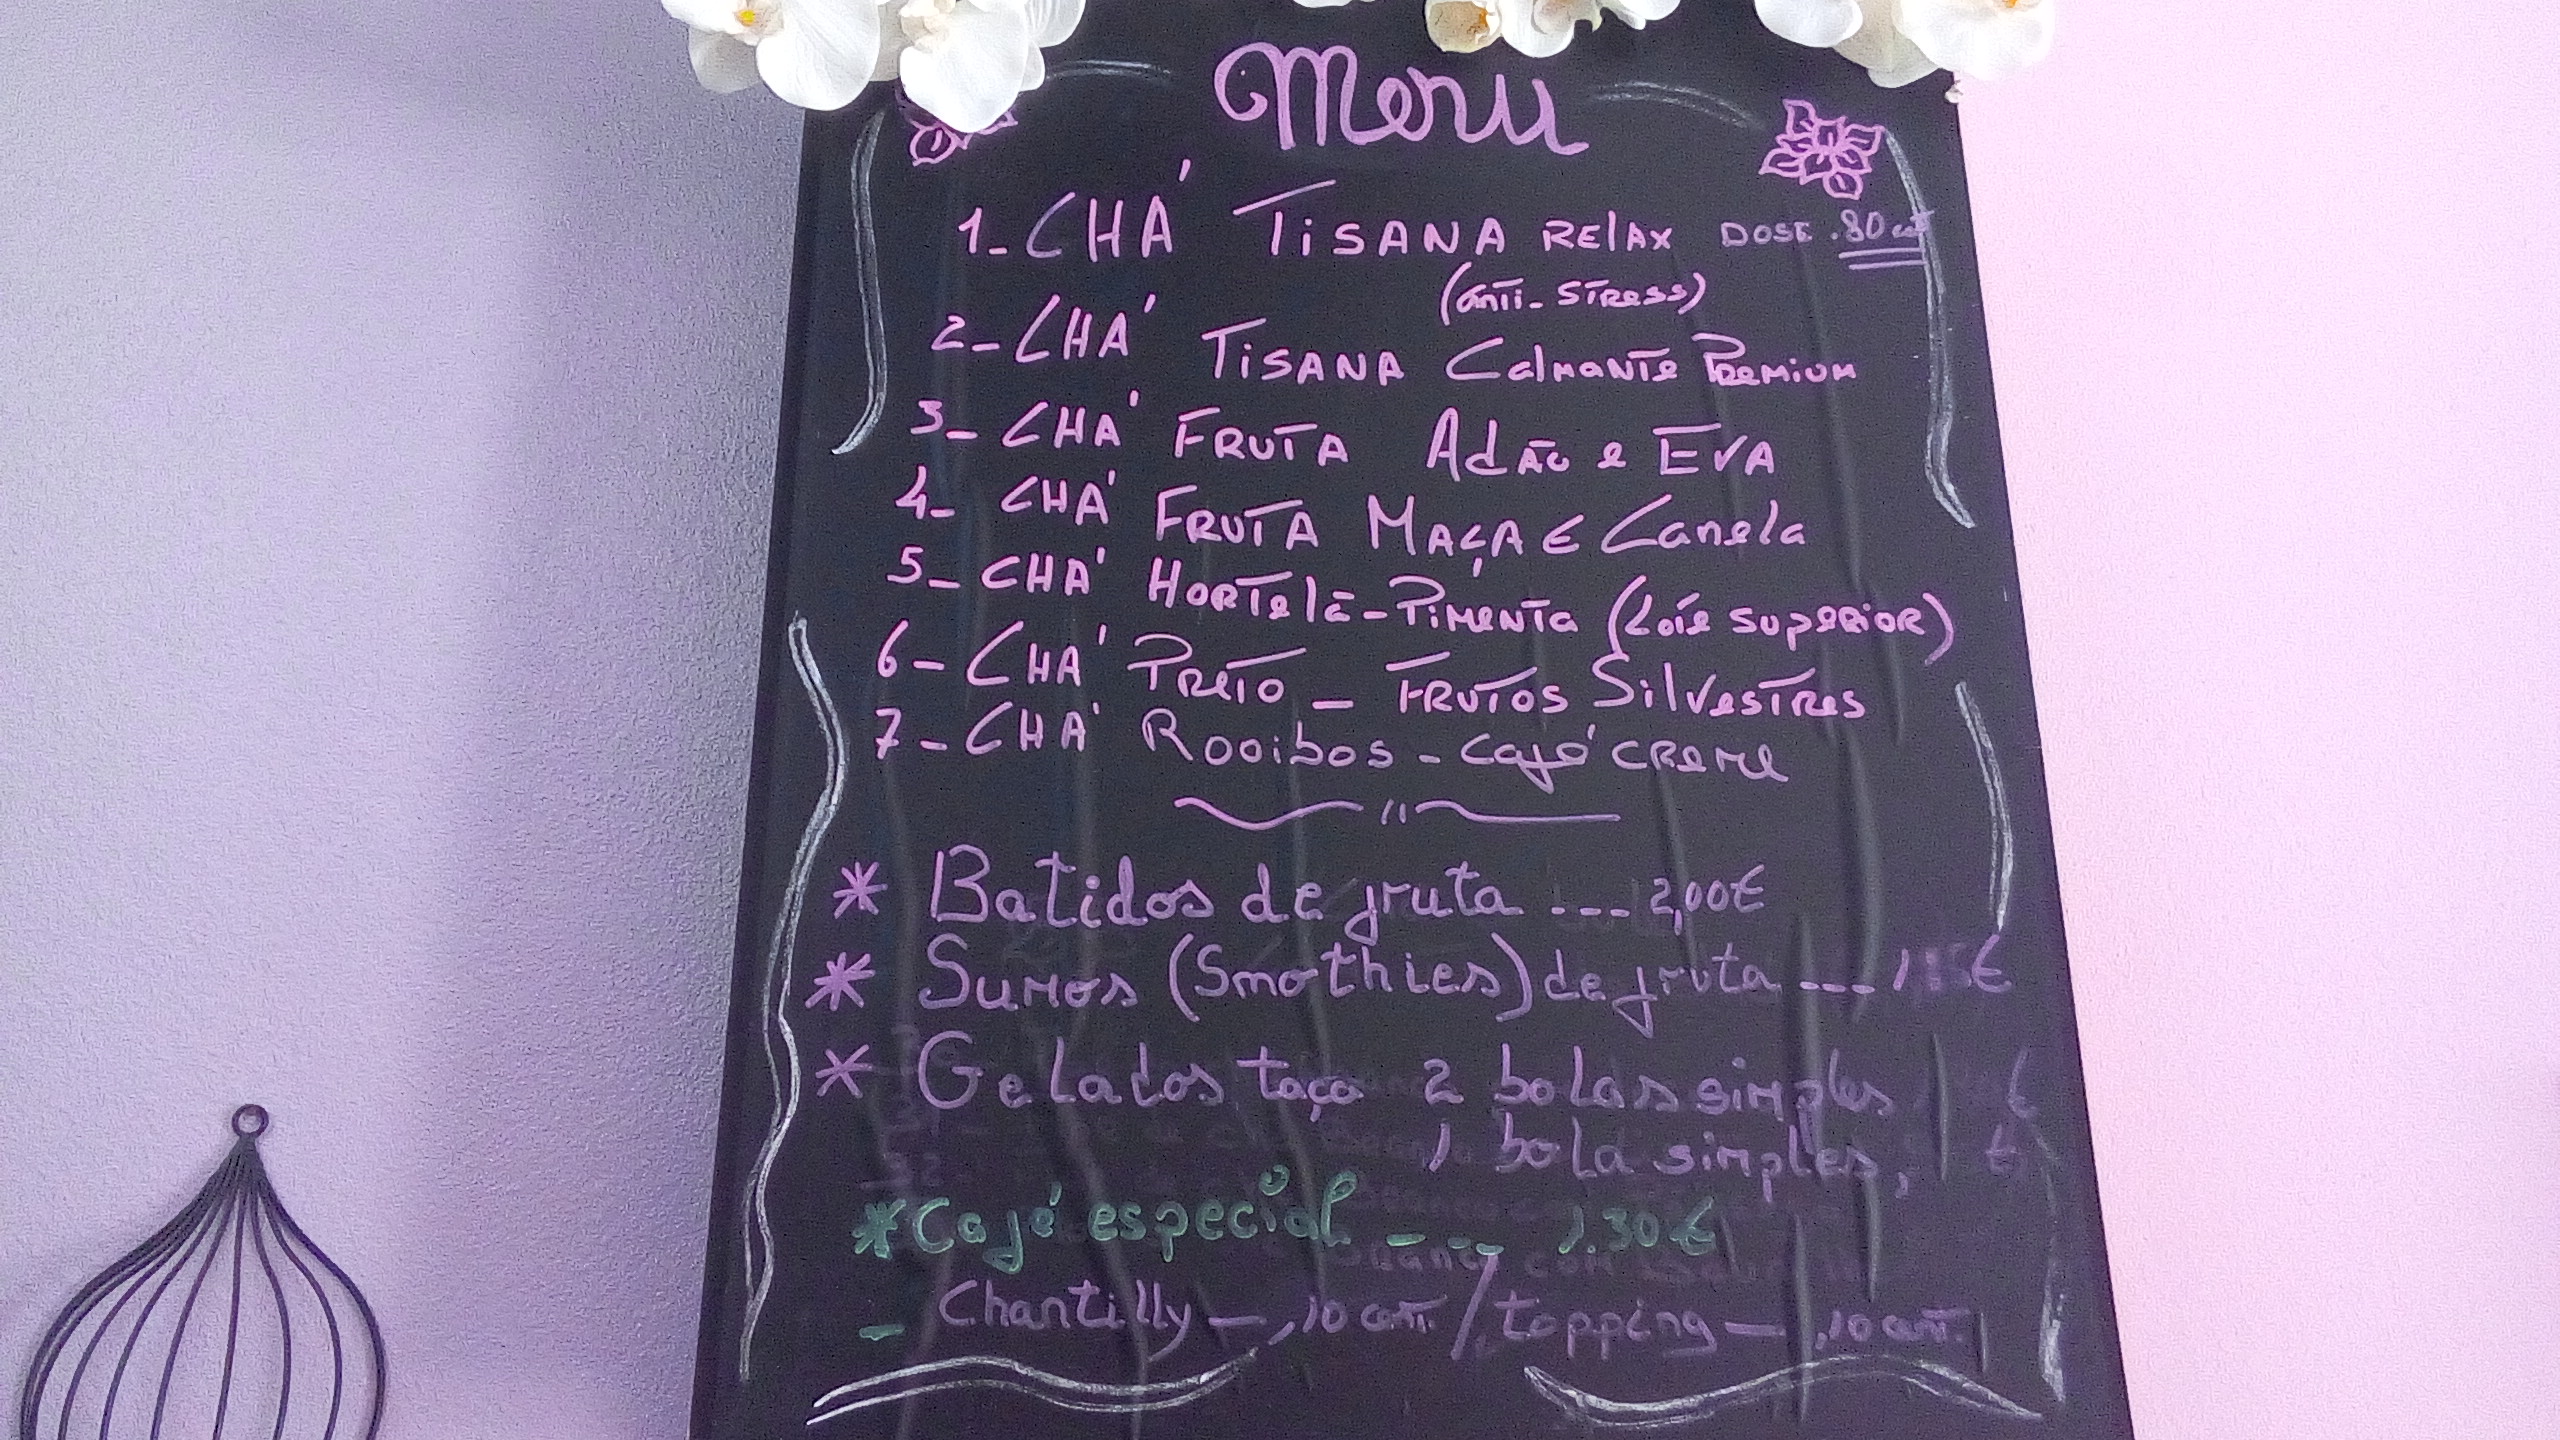 Menu
1- CHÁ TISANA RELAX DOSE .80 cnt
(anti-stress)
2- CHÁ TISANA Calmante Premium
3- CHÁ FRUTA Adão e EVA
4- CHÁ FRUTA MAÇA E Canela
5- CHÁ HORTELÃ-PIMENTA (Loíe SUPERIOR)
6- CHÁ PRETO - FRUTOS SILVESTRES
7- CHÁ Rooibos - café creme
* Batidos de fruta ... 2,00€
* Sumos (Smothies) de fruta ... €
* Gelados taça 2 bolas simples €
1 bola simples, €
*Café especial .... 1.30€
- Chantilly - ,10 cent. / topping - ,10 cent.